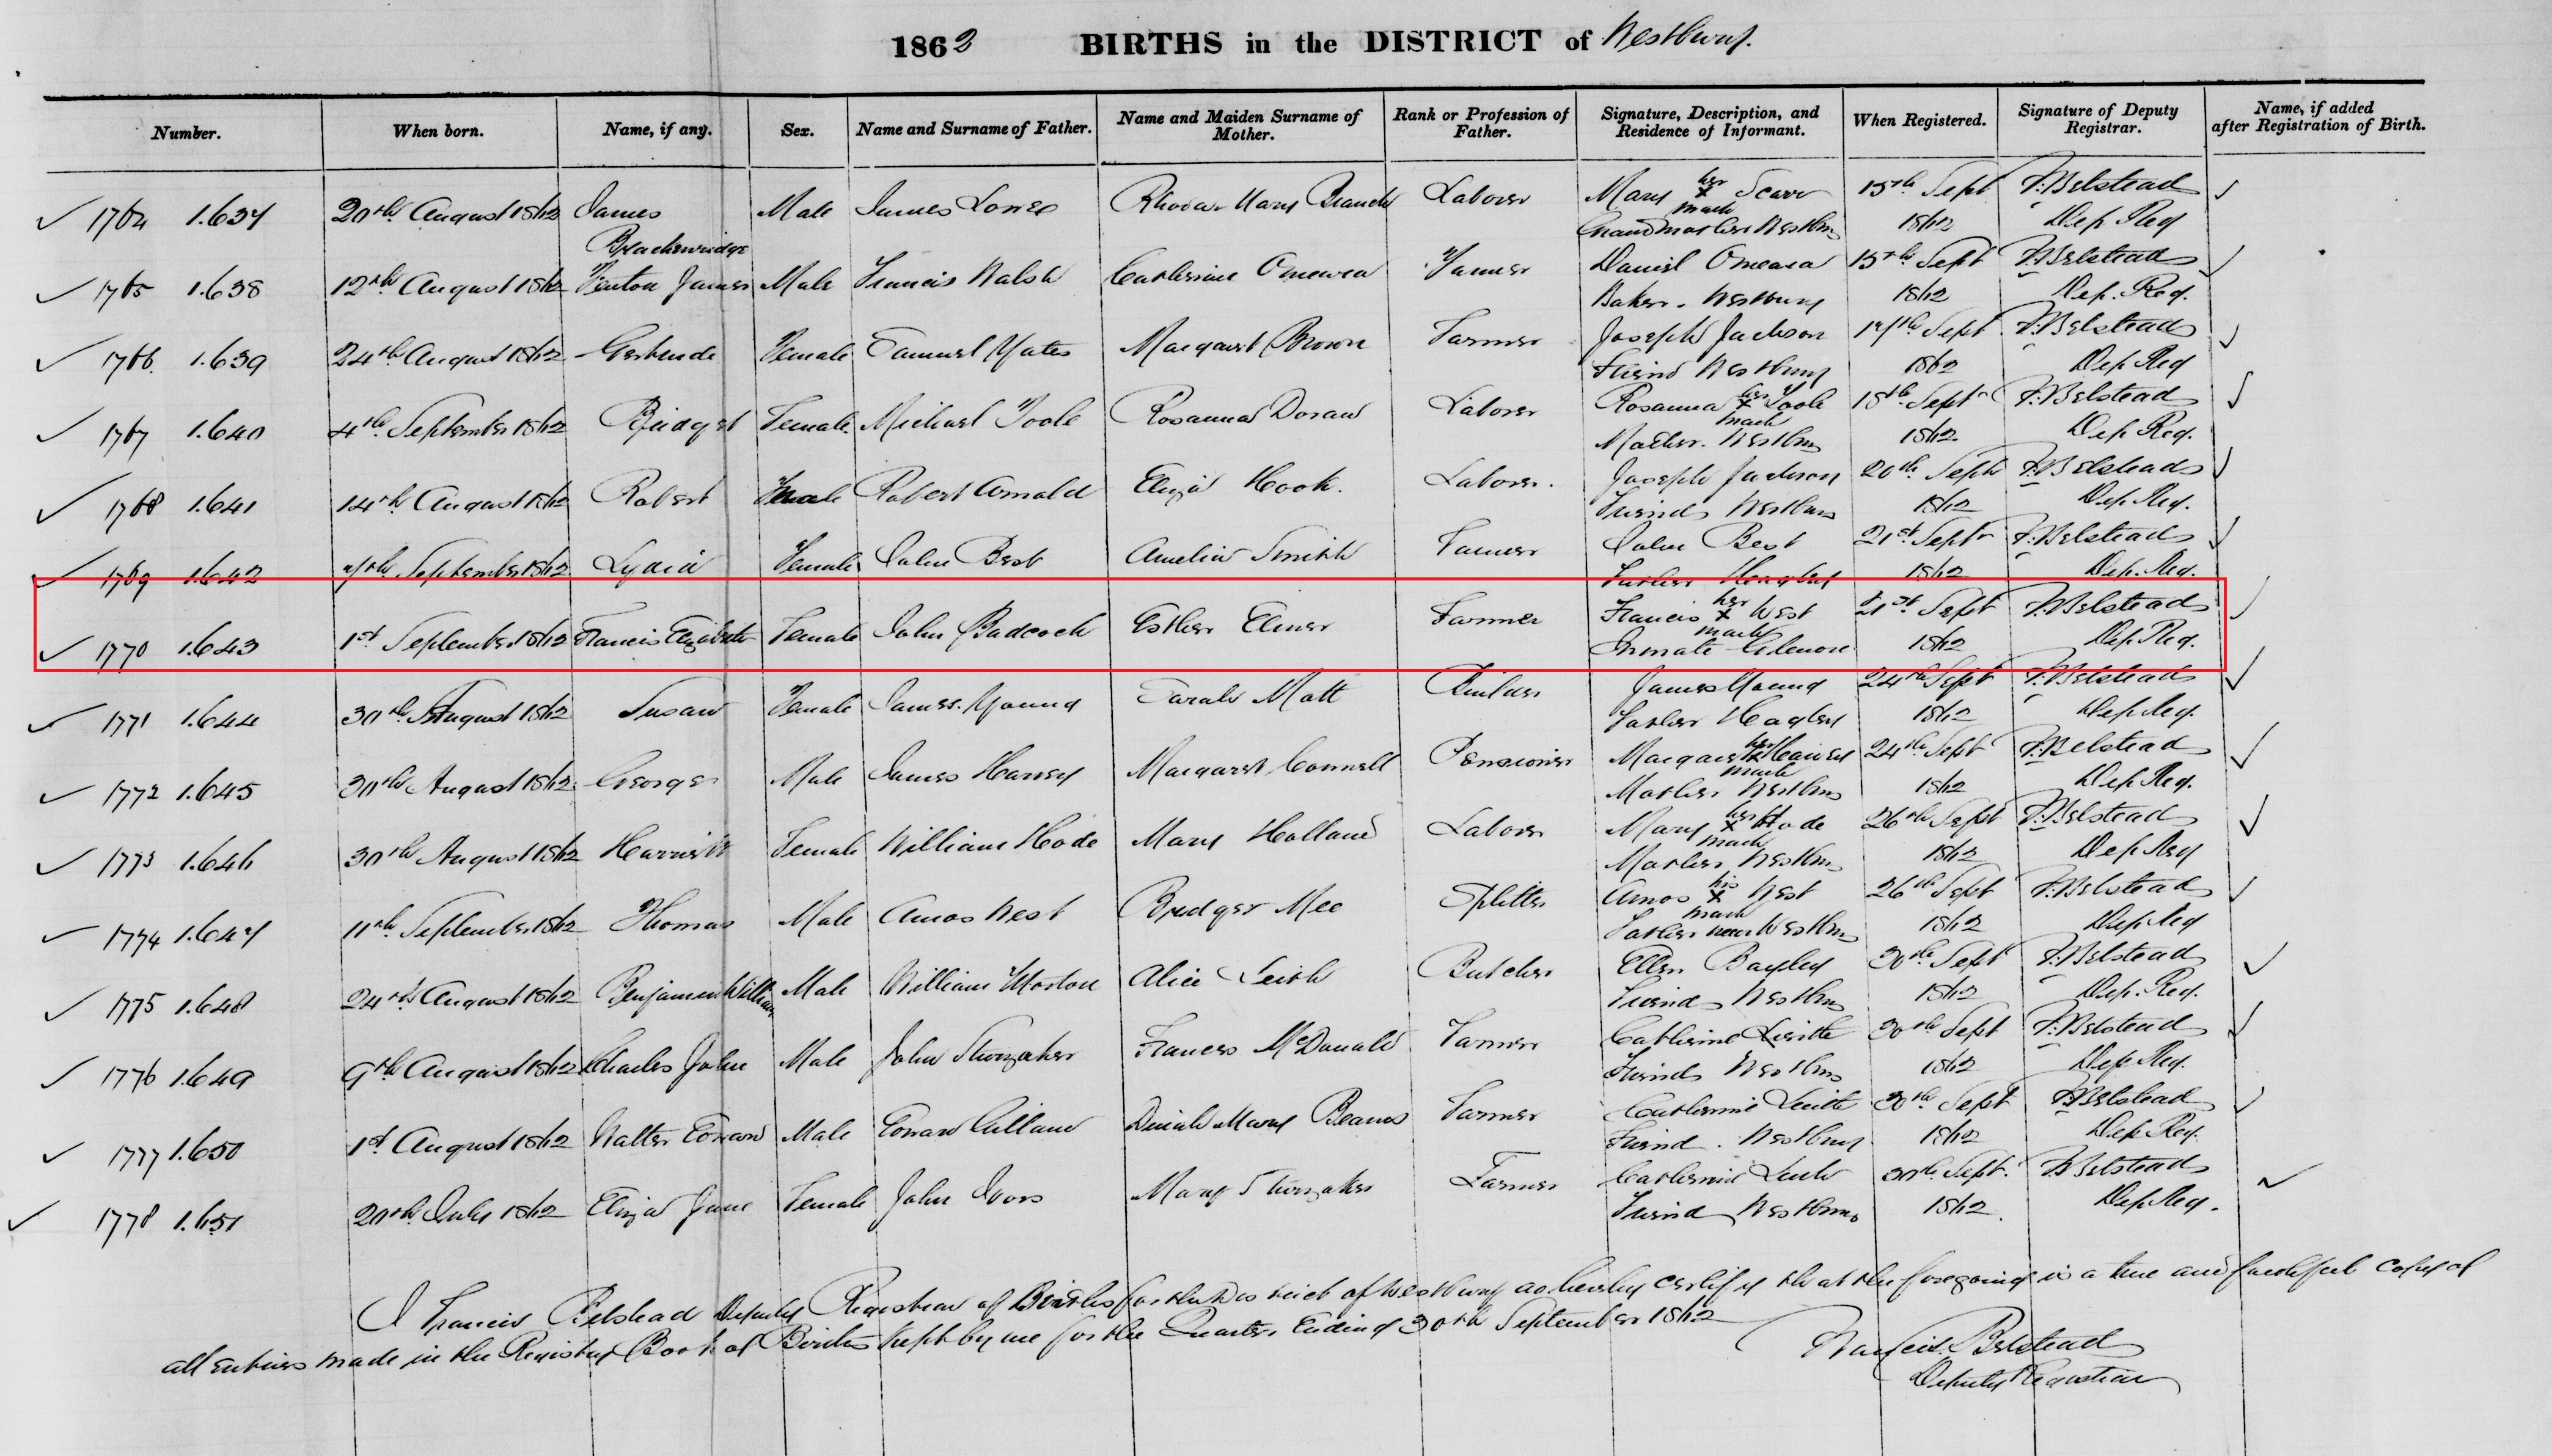 1862 BIRTHS in the DISTRICT of Westbury.
Number. When born. Name, if any. Sex. Name and Surname of Father. Name and Maiden Surname of Mother. Rank or Profession of Father. Signature, Description, and Residence of Informant. When Registered. Signature of Deputy Registrar. Name, if added after Registration of Birth.
1764 1.637 20th August 1862 James Male James Jones Rhoda Mary Laborer Mary her x mark Scarr 15th Sept F. Belstead
Grandmother Westbury 1862 Dep Reg
1765 1.638 12th August 1862 Fenton James Male Francis Walsh Catherine Omeara Farmer Daniel Omeara 15th Sept F. Belstead
Baker. Westbury 1862 Dep. Reg.
1766. 1.639 24th August 1862 Gertrude Female Samuel Yates Margaret Brown Farmer Joseph Jackson 17th Sept F. Belstead
Friend Westbury 1862 Dep Reg
1767 1.640 4th September 1862 Bridget Female Michael Toole Rosanna Doran Laborer Rosanna her x mark Toole 18th Sept F. Belstead
Mother. Westbury 1862 Dep Reg.
1768 1.641 14th August 1862 Robert Male Robert Arnold Eliza Hook. Laborer. Joseph Jackson 20th Sept F. Belstead
Friend Westbury 1862 Dep. Reg.
1769 1.642 7th September 1862 Lydia Female John Best Amelia Smith Farmer John Best 21st Sept F. Belstead
Father Hagley 1862 Dep. Reg.
1770 1.643 1st September 1862 Francis Elizabeth Female John Badcock Esther Elmer Farmer Francis her x mark West 21st Sept F. Belstead
Inmate Glenore 1862 Dep Reg.
1771 1.644 30th August 1862 Susan Female James Young Sarah Mott James Young 24th Sept F. Belstead
Father Hagley 1862 Dep Reg.
1772 1.645 30th August 1862 George Male James Harvey Margaret Connell Pensioner Margaret her x mark Harvey 24th Sept F. Belstead
Mother Westbury 1862 Dep Reg.
1773 1.646 30th August 1862 Harriett Female William Hode Mary Holland Laborer Mary her x mark Hode 26th Sept F. Belstead
Mother Westbury 1862 Dep Reg
1774 1.647 11th September 1862 Thomas Male Amos West Bridget Mee Splitter Amos his x mark West 26th Sept F. Belstead
Father near Westbury 1862 Dep Reg
1775 1.648 24th August 1862 Benjamin William Male William Morton Alice Leith Butcher Ellen Bayley 30th Sept F. Belstead
Friend Westbury 1862 Dep. Reg.
1776 1.649 9th August 1862 Charles John Male John Sturzaker Frances McDonald Farmer Catherine Leith 30th Sept F. Belstead
Friend Westbury 1862 Dep Reg.
1777 1.650 1st August 1862 Walter Edward Male Edward Dinah Mary Farmer Catherine Leith 30th Sept F. Belstead
Friend. Westbury 1862 Dep Reg.
1778 1.651 20th July 1862 Eliza Jane Female John Mary Sturzaker Farmer Catherine Leith 30th Sept. F. Belstead
Friend Westbury 1862. Dep Reg.
I Francis Belstead Deputy Registrar of Births for the District of Westbury do hereby certify that the foregoing is a true and faithful copy of
all entries made in the Registry Book of Births kept by me for the Quarter Ending 30th September 1862
Francis Belstead
Deputy Registrar